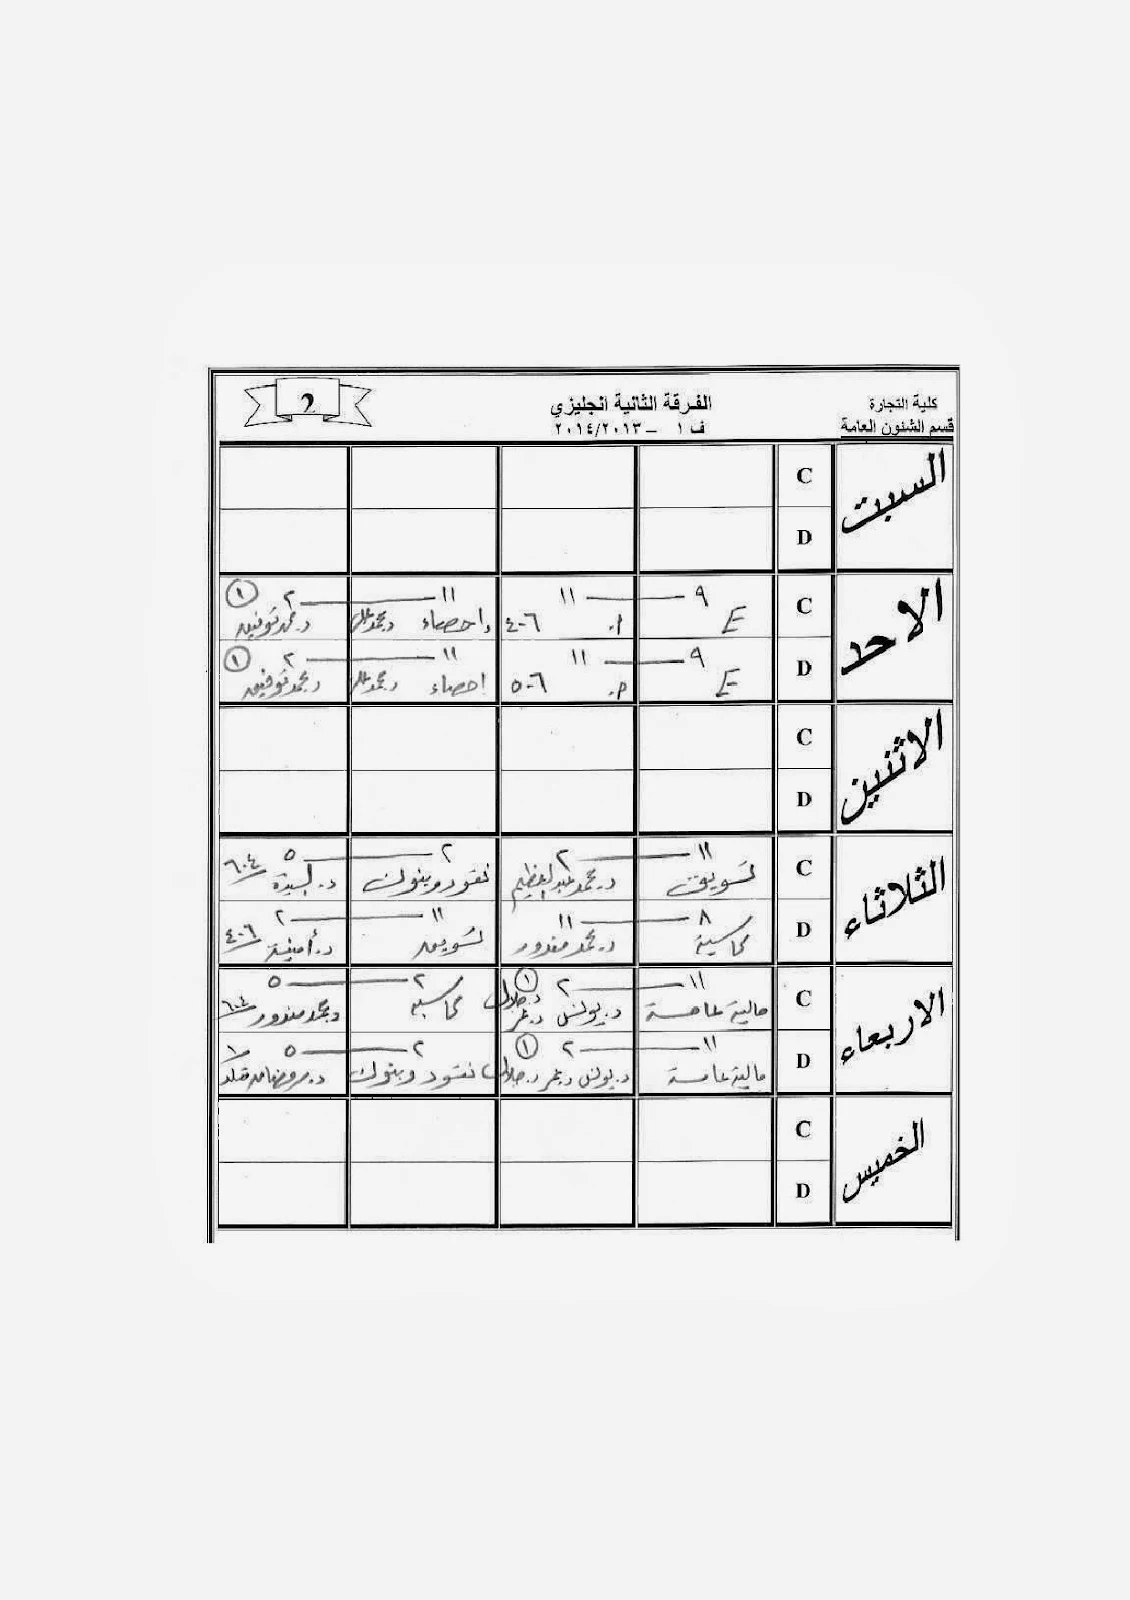 كلية التجارة
قسم الشئون العامة
الفرقة الثانية انجليزي
ف ١ – ٢٠١٤/٢٠١٣
2
السبت
C
D
الاحد
C
٩ — ١١
١١ — ٢ ①
E
٤٠٦
احصاء د. محمد د. محمد توفيق
D
٩ — ١١
١١ — ٢ ①
E
٥٠٦
احصاء د. محمد د. محمد توفيق
الاثنين
C
D
الثلاثاء
C
١١ — ٢
٢ — ٥ ٦٠٤
تسويق د. محمد عبد العظيم
نقود وبنوك د. السيدة
D
٨ — ١١
١١ — ٢ ٤٠٦
محاسبة د. محمد مندور
تسويق د. أمنية
الاربعاء
C
١١ — ٢ ①
٢ — ٥ ٦٠٤
مالية عامة د. يونس د. عمر د. جلال
محاسبة د. محمد مندور
D
١١ — ٢ ①
٢ — ٥
مالية عامة د. يونس د. عمر د. جلال
نقود وبنوك د.
الخميس
C
D